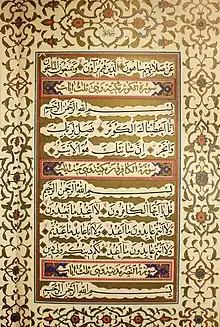 عَنْ صَلَاتِهِمْ سَاهُونَ الَّذِينَ هُمْ يُرَاؤُنَ وَيَمْنَعُونَ الْمَاعُونَ
سورة الكوثر مكية وهي ثلاث آيات
بِسْمِ اللَّهِ الرَّحْمَنِ الرَّحِيمِ
إِنَّا أَعْطَيْنَاكَ الْكَوْثَرَ فَصَلِّ لِرَبِّكَ
وَانْحَرْ إِنَّ شَانِئَكَ هُوَ الْأَبْتَرُ
سورة الكافرون مكية وهي ست آيات
بِسْمِ اللَّهِ الرَّحْمَنِ الرَّحِيمِ
قُلْ يَا أَيُّهَا الْكَافِرُونَ لَا أَعْبُدُ مَا تَعْبُدُونَ
وَلَا أَنْتُمْ عَابِدُونَ مَا أَعْبُدُ وَلَا أَنَا عَابِدٌ مَا عَبَدْتُمْ
وَلَا أَنْتُمْ عَابِدُونَ مَا أَعْبُدُ لَكُمْ دِينُكُمْ وَلِيَ دِينِ
سورة النصر
بِسْمِ اللَّهِ الرَّحْمَنِ الرَّحِيمِ